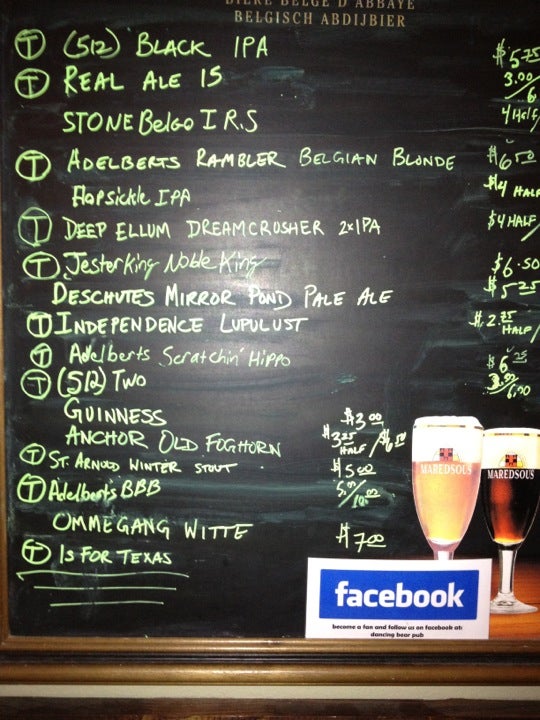 BIÈRE BELGE D'ABBAYE
BELGISCH ABDIJBIER
T (512) BLACK IPA $5.75
T REAL ALE 15 3.00/6
STONE Belgo I.R.S 4 Half/
T ADELBERTS RAMBLER BELGIAN BLONDE $6.50
Hopsickle IPA $4 HALF
T DEEP ELLUM DREAMCRUSHER 2xIPA $4 HALF/
T Jester King Noble King $6.50
DESCHUTES MIRROR POND PALE ALE $5.25
T INDEPENDENCE LUPULUST $2.75 HALF/
T Adelberts Scratchin' Hippo $6.25
T (512) TWO 3.00/6.00
GUINNESS $3.00
ANCHOR OLD FOGHORN $3.25 HALF/$6.50
T ST. ARNOLD WINTER STOUT $5.00
T Adelberts BBB 5.00/10.00
OMMEGANG WITTE $7.00
T IS FOR TEXAS
MAREDSOUS
MAREDSOUS
facebook
become a fan and follow us on facebook at:
dancing bear pub